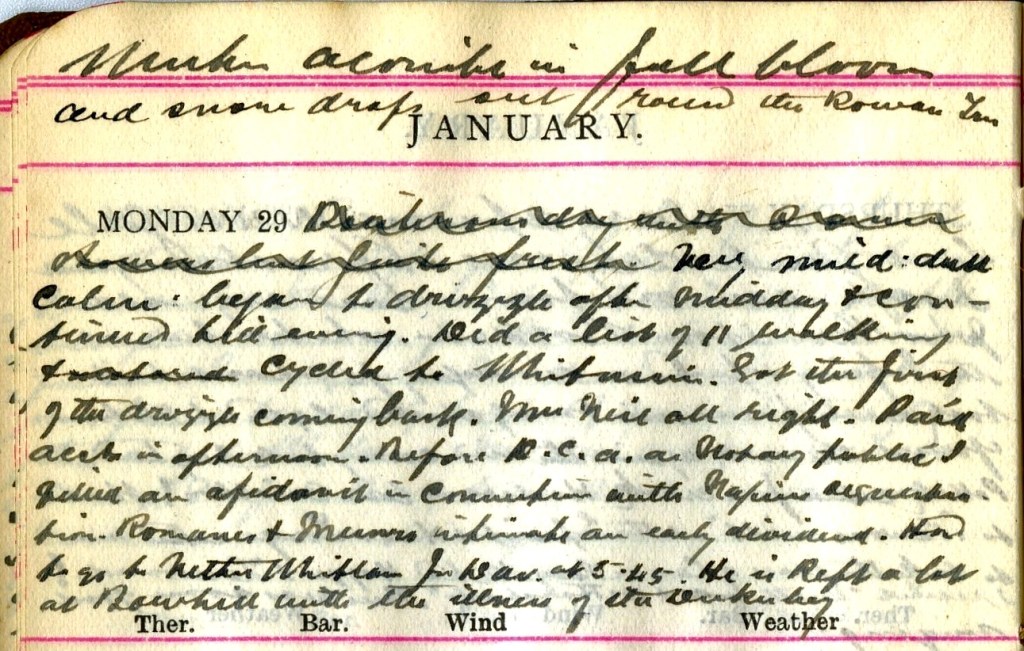 Winter aconite in full bloom
and snow drops out round the Rowan Tree
JANUARY.
MONDAY 29 day with
but quite fresh. Very mild: dull
Calm: began to drizzle after midday & con-
tinued till evening. Did a list of 11 walking
Cycled to Whitmuir. Got the first
of the drizzle coming back. Mrs Neil all right. Paid
accts in afternoon. Before D.C.A. as Notary public I
an afidavit in connection with Napier sequestra-
tion. Romanes & Munro intimate an early dividend. Had
to go to Nether Whitlaw for Dav. at 5-45. He is kept a lot
at Bowhill with the illness of the Duke's boy
Ther. Bar. Wind Weather